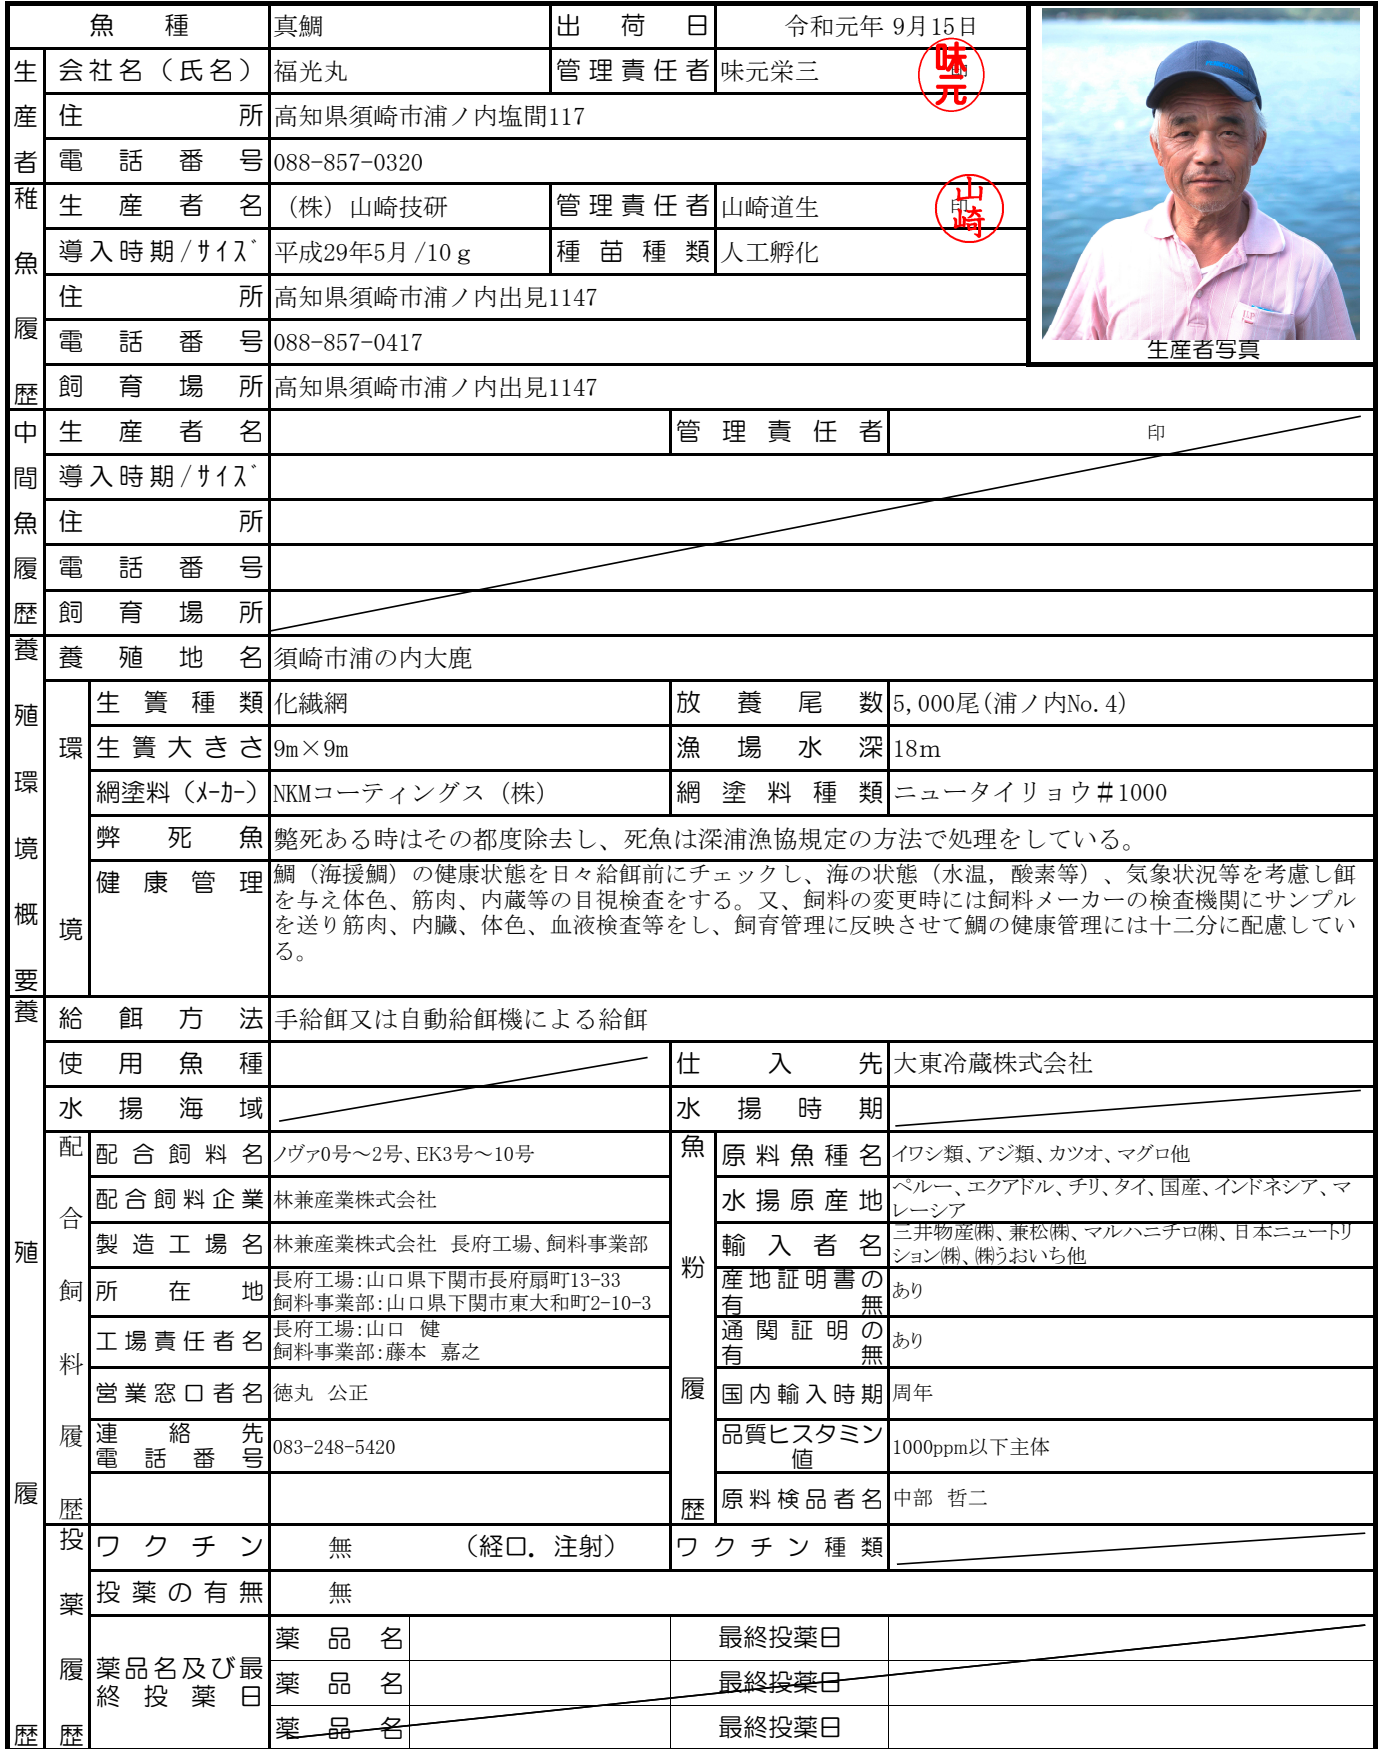 魚種 真鯛 出荷日 令和元年 9月15日
生産者
会社名（氏名） 福光丸 管理責任者 味元栄三 印 味元
住所 高知県須崎市浦ノ内塩間117
電話番号 088-857-0320
稚魚履歴
生産者名 （株）山崎技研 管理責任者 山崎道生 印 山崎
導入時期/ｻｲｽﾞ 平成29年5月/10ｇ 種苗種類 人工孵化
住所 高知県須崎市浦ノ内出見1147
電話番号 088-857-0417
生産者写真
飼育場所 高知県須崎市浦ノ内出見1147
中間魚履歴
生産者名 管理責任者 印
導入時期/ｻｲｽﾞ
住所
電話番号
飼育場所
養殖環境概要
養殖地名 須崎市浦の内大鹿
環境
生簀種類 化繊網 放養尾数 5,000尾(浦ノ内No.4)
生簀大きさ 9m×9m 漁場水深 18ｍ
網塗料（ﾒｰｶｰ） NKMコーティングス（株） 網塗料種類 ニュータイリョウ＃1000
弊死魚 斃死ある時はその都度除去し、死魚は深浦漁協規定の方法で処理をしている。
健康管理 鯛（海援鯛）の健康状態を日々給餌前にチェックし、海の状態（水温，酸素等）、気象状況等を考慮し餌
を与え体色、筋肉、内蔵等の目視検査をする。又、飼料の変更時には飼料メーカーの検査機関にサンプル
を送り筋肉、内臓、体色、血液検査等をし、飼育管理に反映させて鯛の健康管理には十二分に配慮してい
る。
養殖履歴
給餌方法 手給餌又は自動給餌機による給餌
使用魚種 仕入先 大東冷蔵株式会社
水揚海域 水揚時期
配合飼料履歴
配合飼料名 ノヴァ0号～2号、EK3号～10号
配合飼料企業 林兼産業株式会社
製造工場名 林兼産業株式会社 長府工場、飼料事業部
所在地 長府工場：山口県下関市長府扇町13-33
飼料事業部：山口県下関市東大和町2-10-3
工場責任者名 長府工場：山口 健
飼料事業部：藤本 嘉之
営業窓口者名 徳丸 公正
連絡先
電話番号 083-248-5420
魚粉履歴
原料魚種名 イワシ類、アジ類、カツオ、マグロ他
水揚原産地 ペルー、エクアドル、チリ、タイ、国産、インドネシア、マ
レーシア
輸入者名 三井物産㈱、兼松㈱、マルハニチロ㈱、日本ニュートリ
ション㈱、㈱うおいち他
産地証明書の
有無 あり
通関証明の
有無 あり
国内輸入時期 周年
品質ヒスタミン
値 1000ppm以下主体
原料検品者名 中部 哲二
投薬履歴
ワクチン 無 （経口．注射） ワクチン種類
投薬の有無 無
薬品名及び最
終投薬日
薬品名 最終投薬日
薬品名 最終投薬日
薬品名 最終投薬日